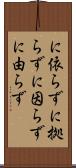 に依らずに拠
らずに因らず
に由らず